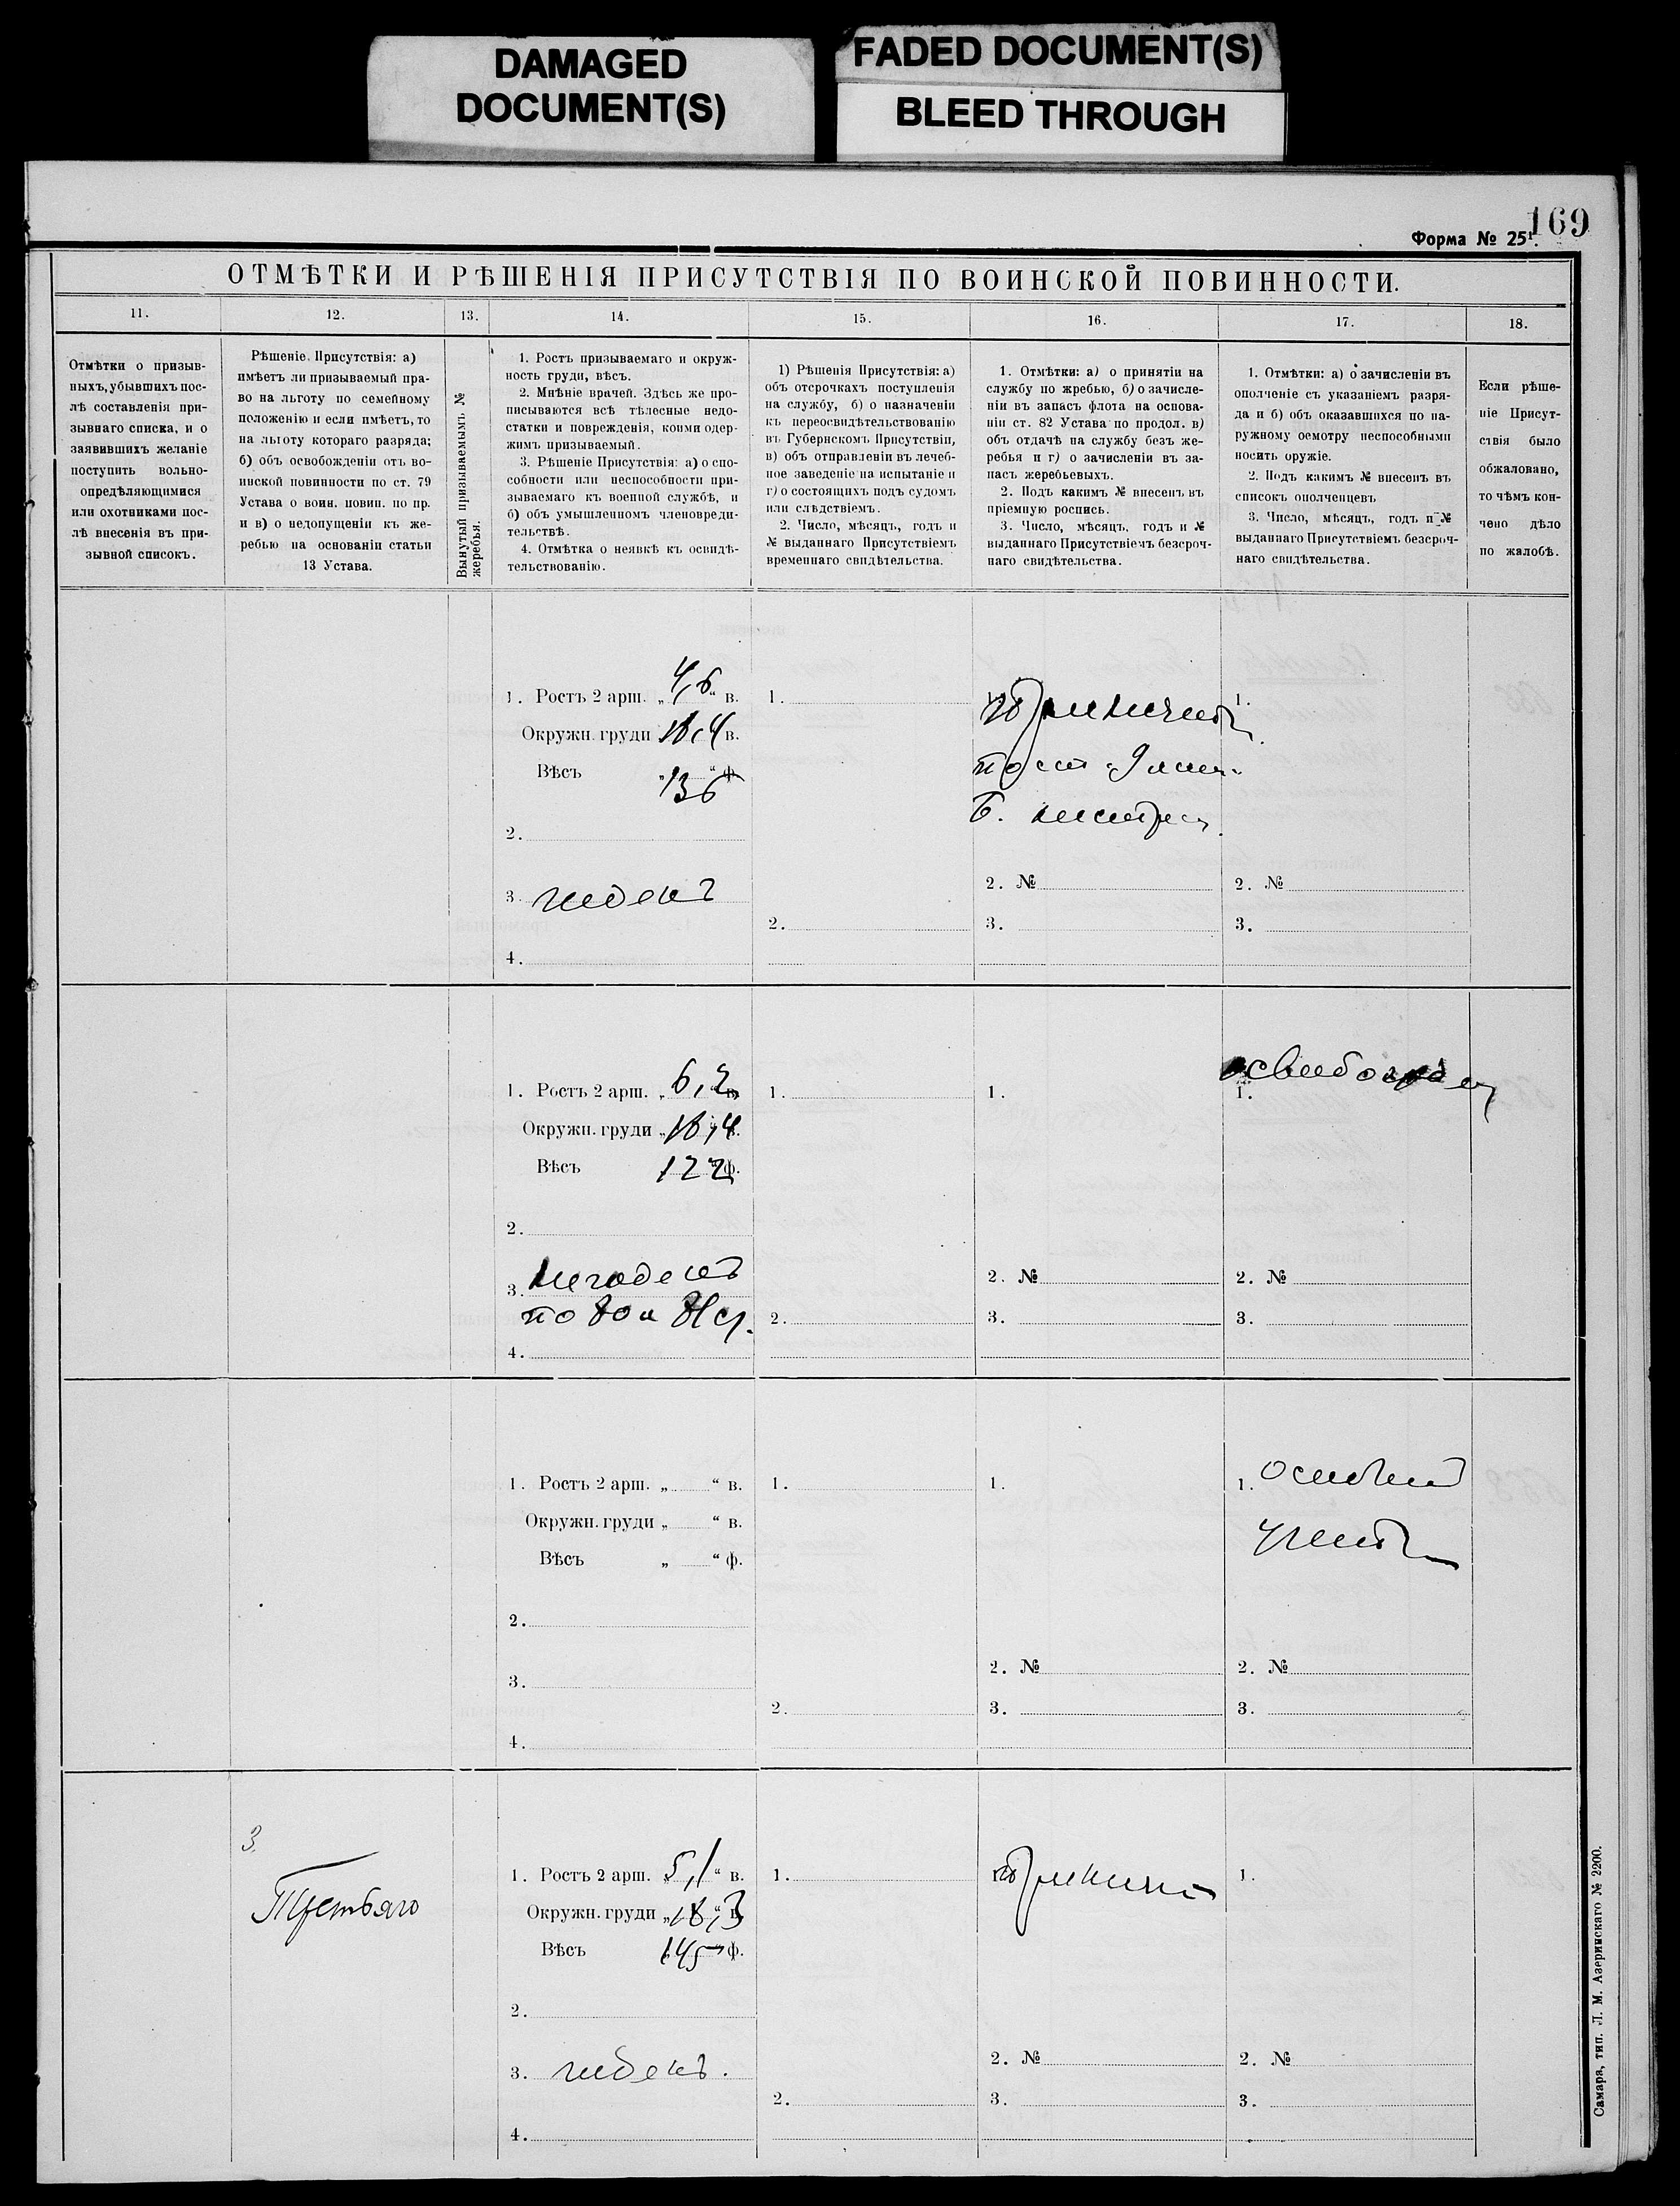 DAMAGED
DOCUMENT(S)
FADED DOCUMENT(S)
BLEED THROUGH
169
Форма № 25¹.
ОТМѢТКИ И РѢШЕНІЯ ПРИСУТСТВІЯ ПО ВОИНСКОЙ ПОВИННОСТИ.
11.
12.
13.
14.
15.
16.
17.
18.
Отмѣтки о призыв-
ныхъ, убывшихъ пос-
лѣ составленія при-
зывнаго списка, и о
заявившихъ желаніе
поступить вольно-
опредѣляющимися
или охотниками пос-
лѣ внесенія въ при-
зывной списокъ.
Рѣшеніе Присутствія: а)
имѣетъ ли призываемый пра-
во на льготу по семейному
положенію и если имѣетъ, то
на льготу котораго разряда;
б) объ освобожденіи отъ во-
инской повинности по ст. 79
Устава о воин. повин. по пр.
и в) о недопущеніи къ же-
ребью на основаніи статьи
13 Устава.
Вынутый призываемымъ №
жеребья.
1. Ростъ призываемаго и окруж-
ность груди, вѣсъ.
2. Мнѣніе врачей. Здѣсь же про-
писываются всѣ тѣлесные недо-
статки и поврежденія, коими одер-
жимъ призываемый.
3. Рѣшеніе Присутствія: а) о спо-
собности или неспособности при-
зываемаго къ военной службѣ, и
б) объ умышленномъ членовреди-
тельствѣ.
4. Отмѣтка о неявкѣ къ освидѣ-
тельствованію.
1) Рѣшенія Присутствія: а)
объ отсрочкахъ поступленія
на службу, б) о назначеніи
къ переосвидѣтельствованію
въ Губернскомъ Присутствіи,
в) объ отправленіи въ лечеб-
ное заведеніе на испытаніе и
г) о состоящихъ подъ судомъ
или слѣдствіемъ.
2. Число, мѣсяцъ, годъ и
№ выданнаго Присутствіемъ
временнаго свидѣтельства.
1. Отмѣтки: а) о принятіи на
службу по жребью, б) о зачисле-
ніи въ запасъ флота на основа-
ніи ст. 82 Устава по продол. в)
объ отдачѣ на службу безъ же-
ребья и г) о зачисленіи въ за-
пасъ жеребьевыхъ.
2. Подъ какимъ № внесенъ въ
пріемную роспись.
3. Число, мѣсяцъ, годъ и №
выданнаго Присутствіемъ безсроч-
наго свидѣтельства.
1. Отмѣтки: а) о зачисленіи въ
ополченіе съ указаніемъ разря-
да и б) объ оказавшихся по на-
ружному осмотру неспособными
носить оружіе.
2. Подъ какимъ № внесенъ въ
списокъ ополченцевъ
3. Число, мѣсяцъ, годъ и №
выданнаго Присутствіемъ безсроч-
наго свидѣтельства.
Если рѣше-
ніе Присут-
ствія было
обжаловано,
то чѣмъ кон-
чено дѣло
по жалобѣ.
1. Ростъ 2 арш. „ 4,6 “ в.
Окружн. груди 18,4 в.
Вѣсъ „ 136 “ ф.
2.
3. годенъ
4.
1.
2.
по ст 9
Б.
2. №
3.
1.
2. №
3.
1. Ростъ 2 арш. „ 6,2 “ в.
Окружн. груди „ 18,4 в.
Вѣсъ 122 ф.
2.
3. негоденъ
по 80 и
4.
1.
2.
1.
2. №
3.
освобожден
1.
2. №
3.
1. Ростъ 2 арш. „ “ в.
Окружн. груди „ “ в.
Вѣсъ „ “ ф.
2.
3.
4.
1.
2.
1.
2. №
3.
1.
2. №
3.
3.
Третьяго
1. Ростъ 2 арш. 5,1 “ в.
Окружн. груди „ 18,3 “ в.
Вѣсъ 145 ф.
2.
3. годенъ.
4.
1.
2.
2. №
3.
1.
2. №
3.
Самара, тип. Л. М. Азеринскаго № 2200.